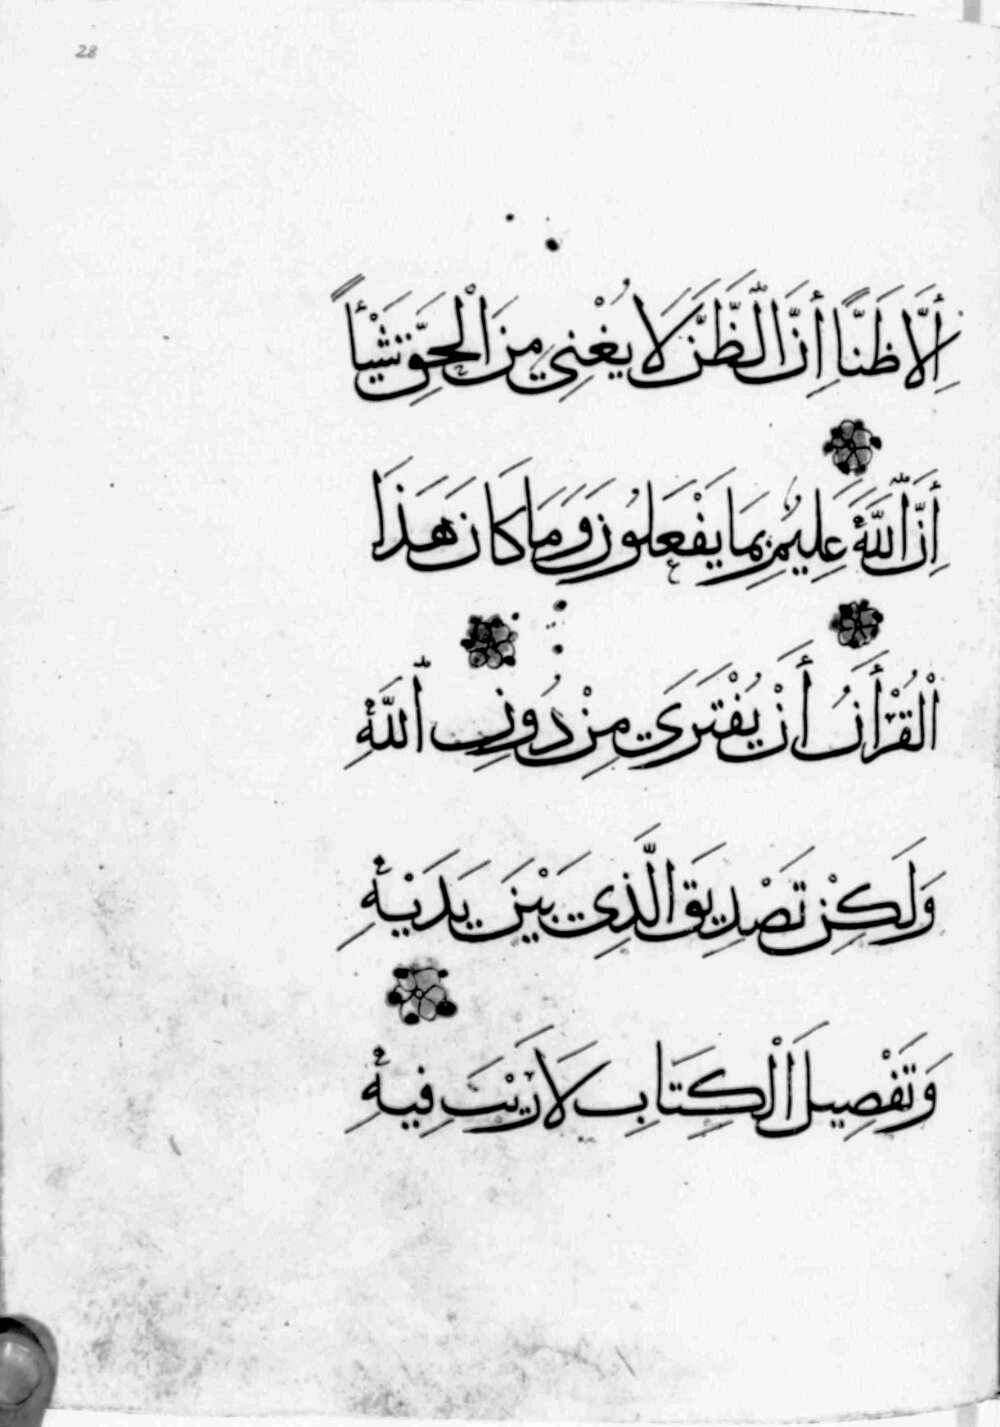 28
إِلَّا ظَنًّا إِنَّ الظَّنَّ لَا يُغْنِي مِنَ الْحَقِّ شَيْئًا
إِنَّ اللَّهَ عَلِيمٌ بِمَا يَفْعَلُونَ وَمَا كَانَ هَذَا
الْقُرْأَنُ أَنْ يُفْتَرَى مِنْ دُونِ اللَّهِ
وَلَكِنْ تَصْدِيقَ الَّذِي بَيْنَ يَدَيْهِ
وَتَفْصِيلَ الْكِتَابِ لَا رَيْبَ فِيهِ